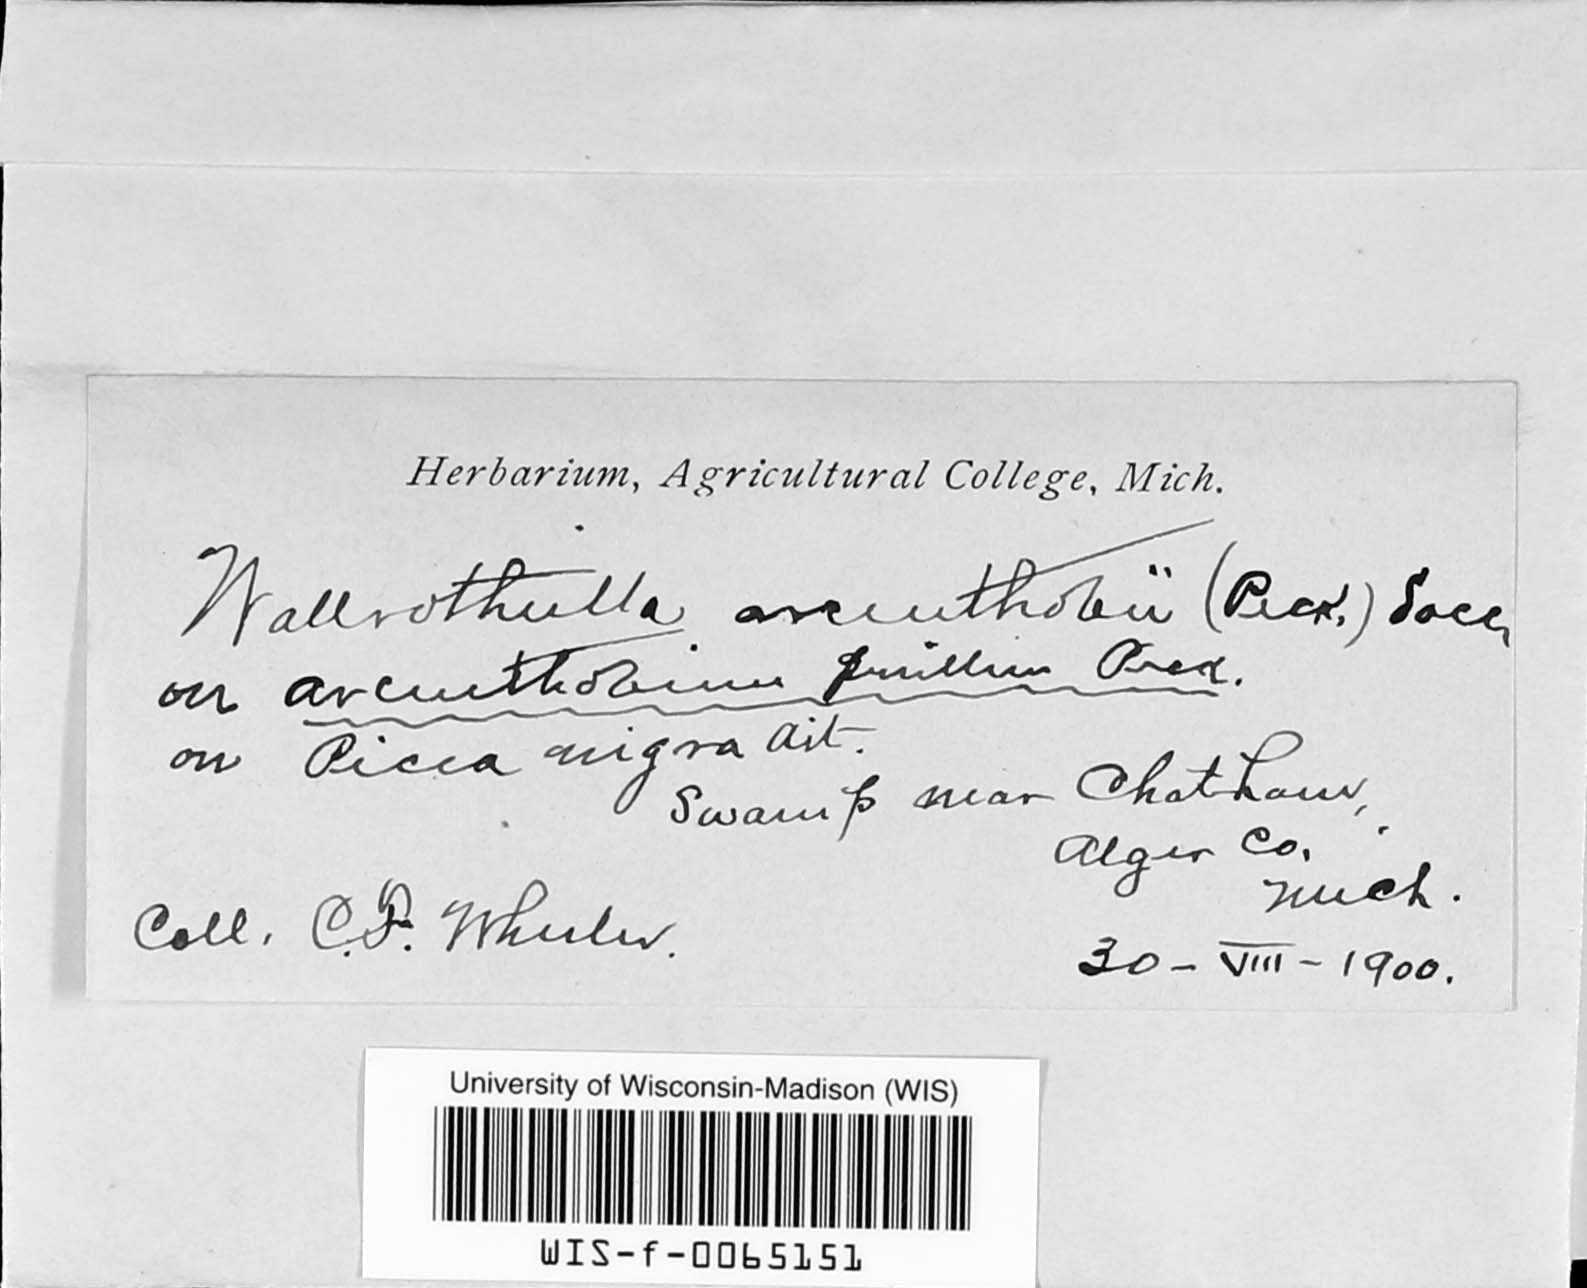 Herbarium, Agricultural College, Mich.
Wallrothiella arceuthobii (Peck.) Sacc.
on arceuthobium pusillum Peck.
on Picea nigra Ait.
Swamp near Chatham,
Alger Co.
Mich.
Coll. C.F. Wheeler.
30-VIII-1900.
University of Wisconsin-Madison (WIS)
WIS-f-0065151